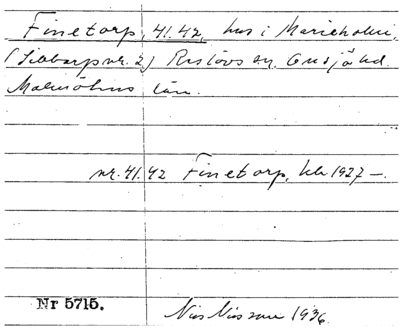 Finetorp, 41.42, hus i Marieholm,
(Sibbarp nr. 2) Reslövs sn, Onsjö hd.
Malmöhus län.
nr. 41.42 Finetorp, 1927 –.
Nr 5715. Nils Nilsson 1936